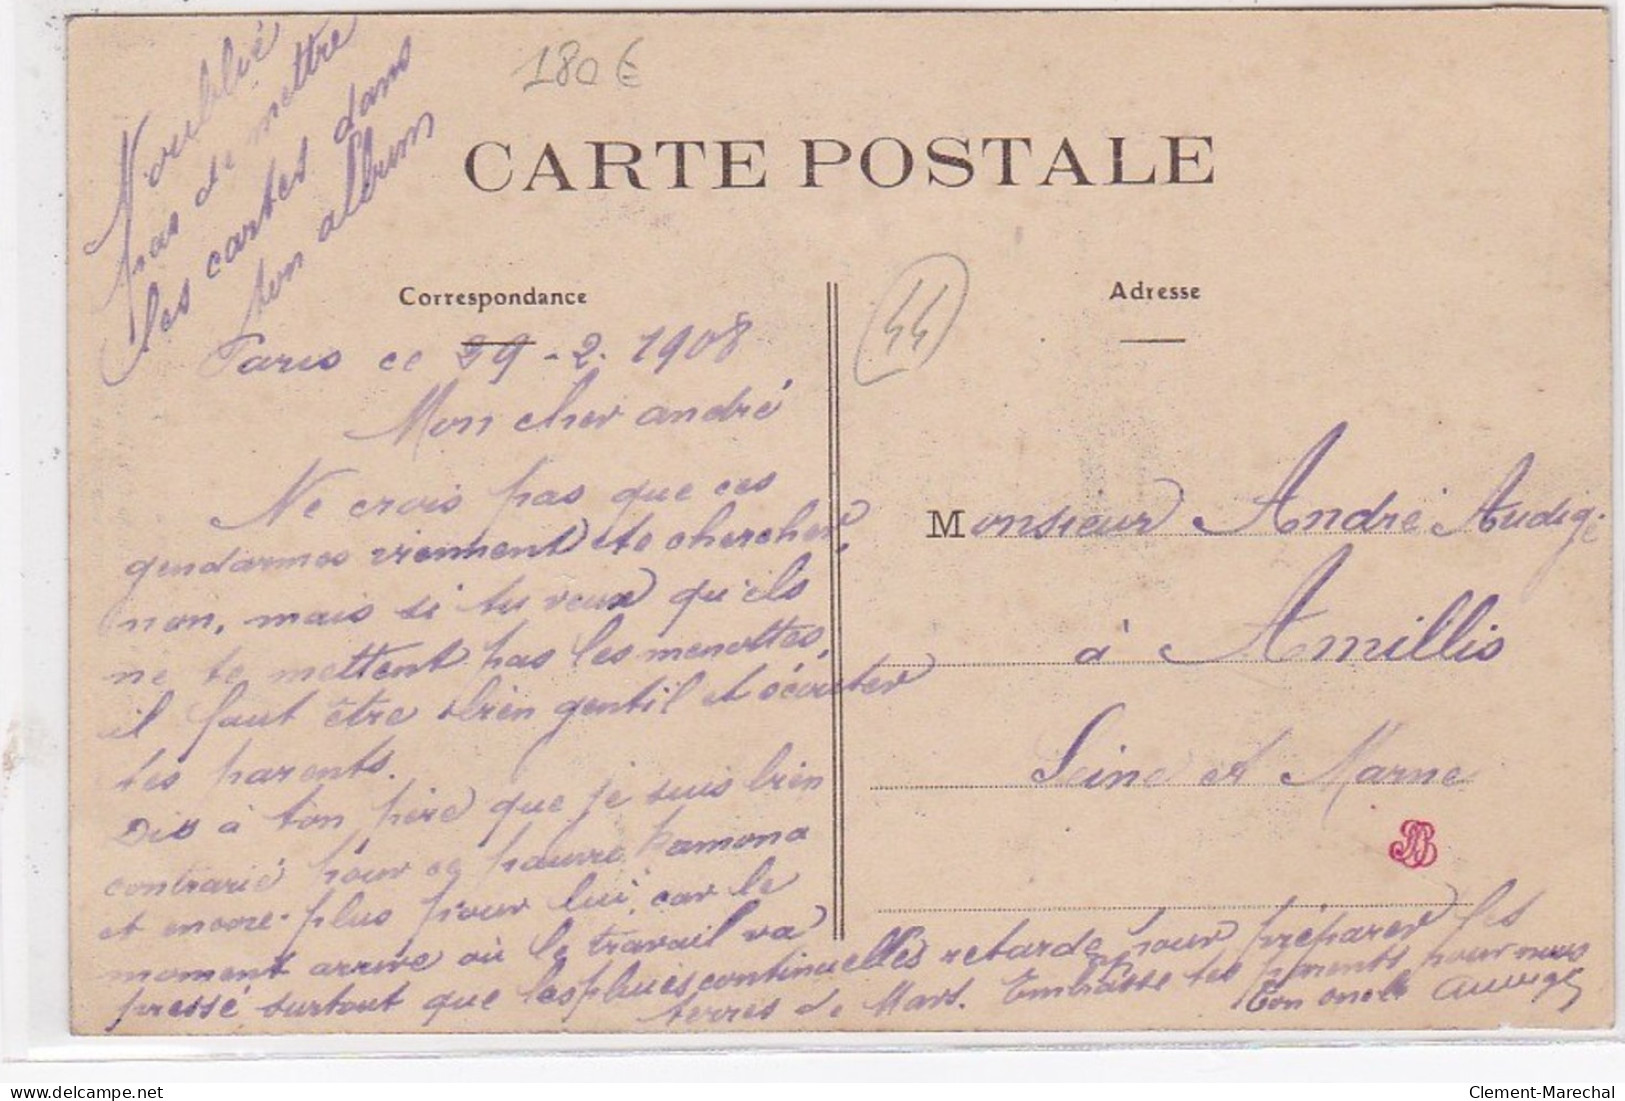 180€
N'oublié
pas de mettre
les cartes dans
ton album
CARTE POSTALE
Correspondance
Adresse
44
Paris ce 29-2-1908
Mon cher andré
Ne crois pas que ces
gendarmes viennent te chercher,
non, mais si tu veux qu'ils
ne te mettent pas les menottes,
il faut être bien gentil et écouter
tes parents.
Dis à ton père que je suis bien
contrarié pour ce pauvre Ramona
et encore plus pour lui, car le
moment arrive où le travail va
pressé surtout que les pluies continuelles retarde pour préparer les
terres de Mars. Embrasse tes parents pour nous
Ton oncle
Monsieur André Audigé
à Amillis
Seine et Marne
delcampe.net
Clement-Marechal